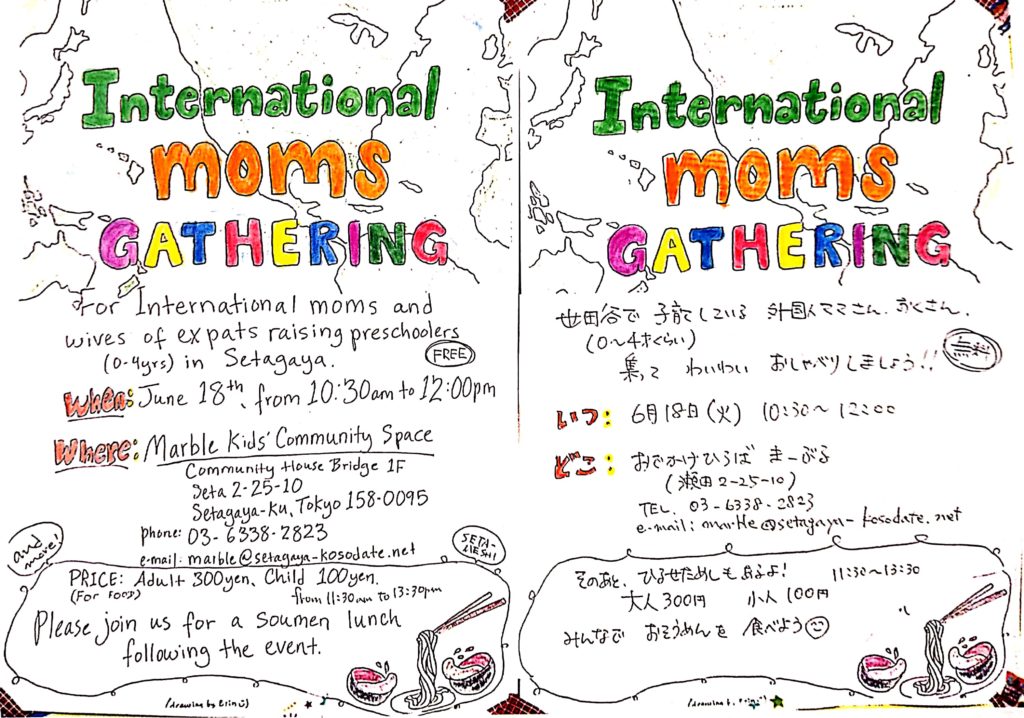 International
MOMS
GATHERING
For International moms and
wives of expats raising preschoolers
(0-4yrs) in Setagaya.
FREE
When: June 18th, from 10:30am to 12:00pm
Where: Marble Kids' Community Space
Community House Bridge 1F
Seta 2-25-10
Setagaya-ku, Tokyo 158-0095
phone: 03-6338-2823
e-mail: marble@setagaya-kosodate.net
and more!
SETA-MESHI
PRICE: Adult 300yen, Child 100yen.
(For Food)
from 11:30am to 13:30pm
Please join us for a soumen lunch
following the event.
(drawing by Erin :)
International
MOMS
GATHERING
世田谷で 子育てしている 外国人ママさん、おくさん、
(0~4才くらい)
無料
集って わいわい おしゃべりしましょう!!
いつ: 6月18日(火) 10:30~12:00
どこ: おでかけひろば まーぶる
(瀬田2-25-10)
TEL. 03-6338-2823
e-mail: marble@setagaya-kosodate.net
そのあと、ひるせためしもあるよ! 11:30~13:30
大人300円 小人100円
みんなで おそうめんを 食べよう☺
(drawing by Erin :)